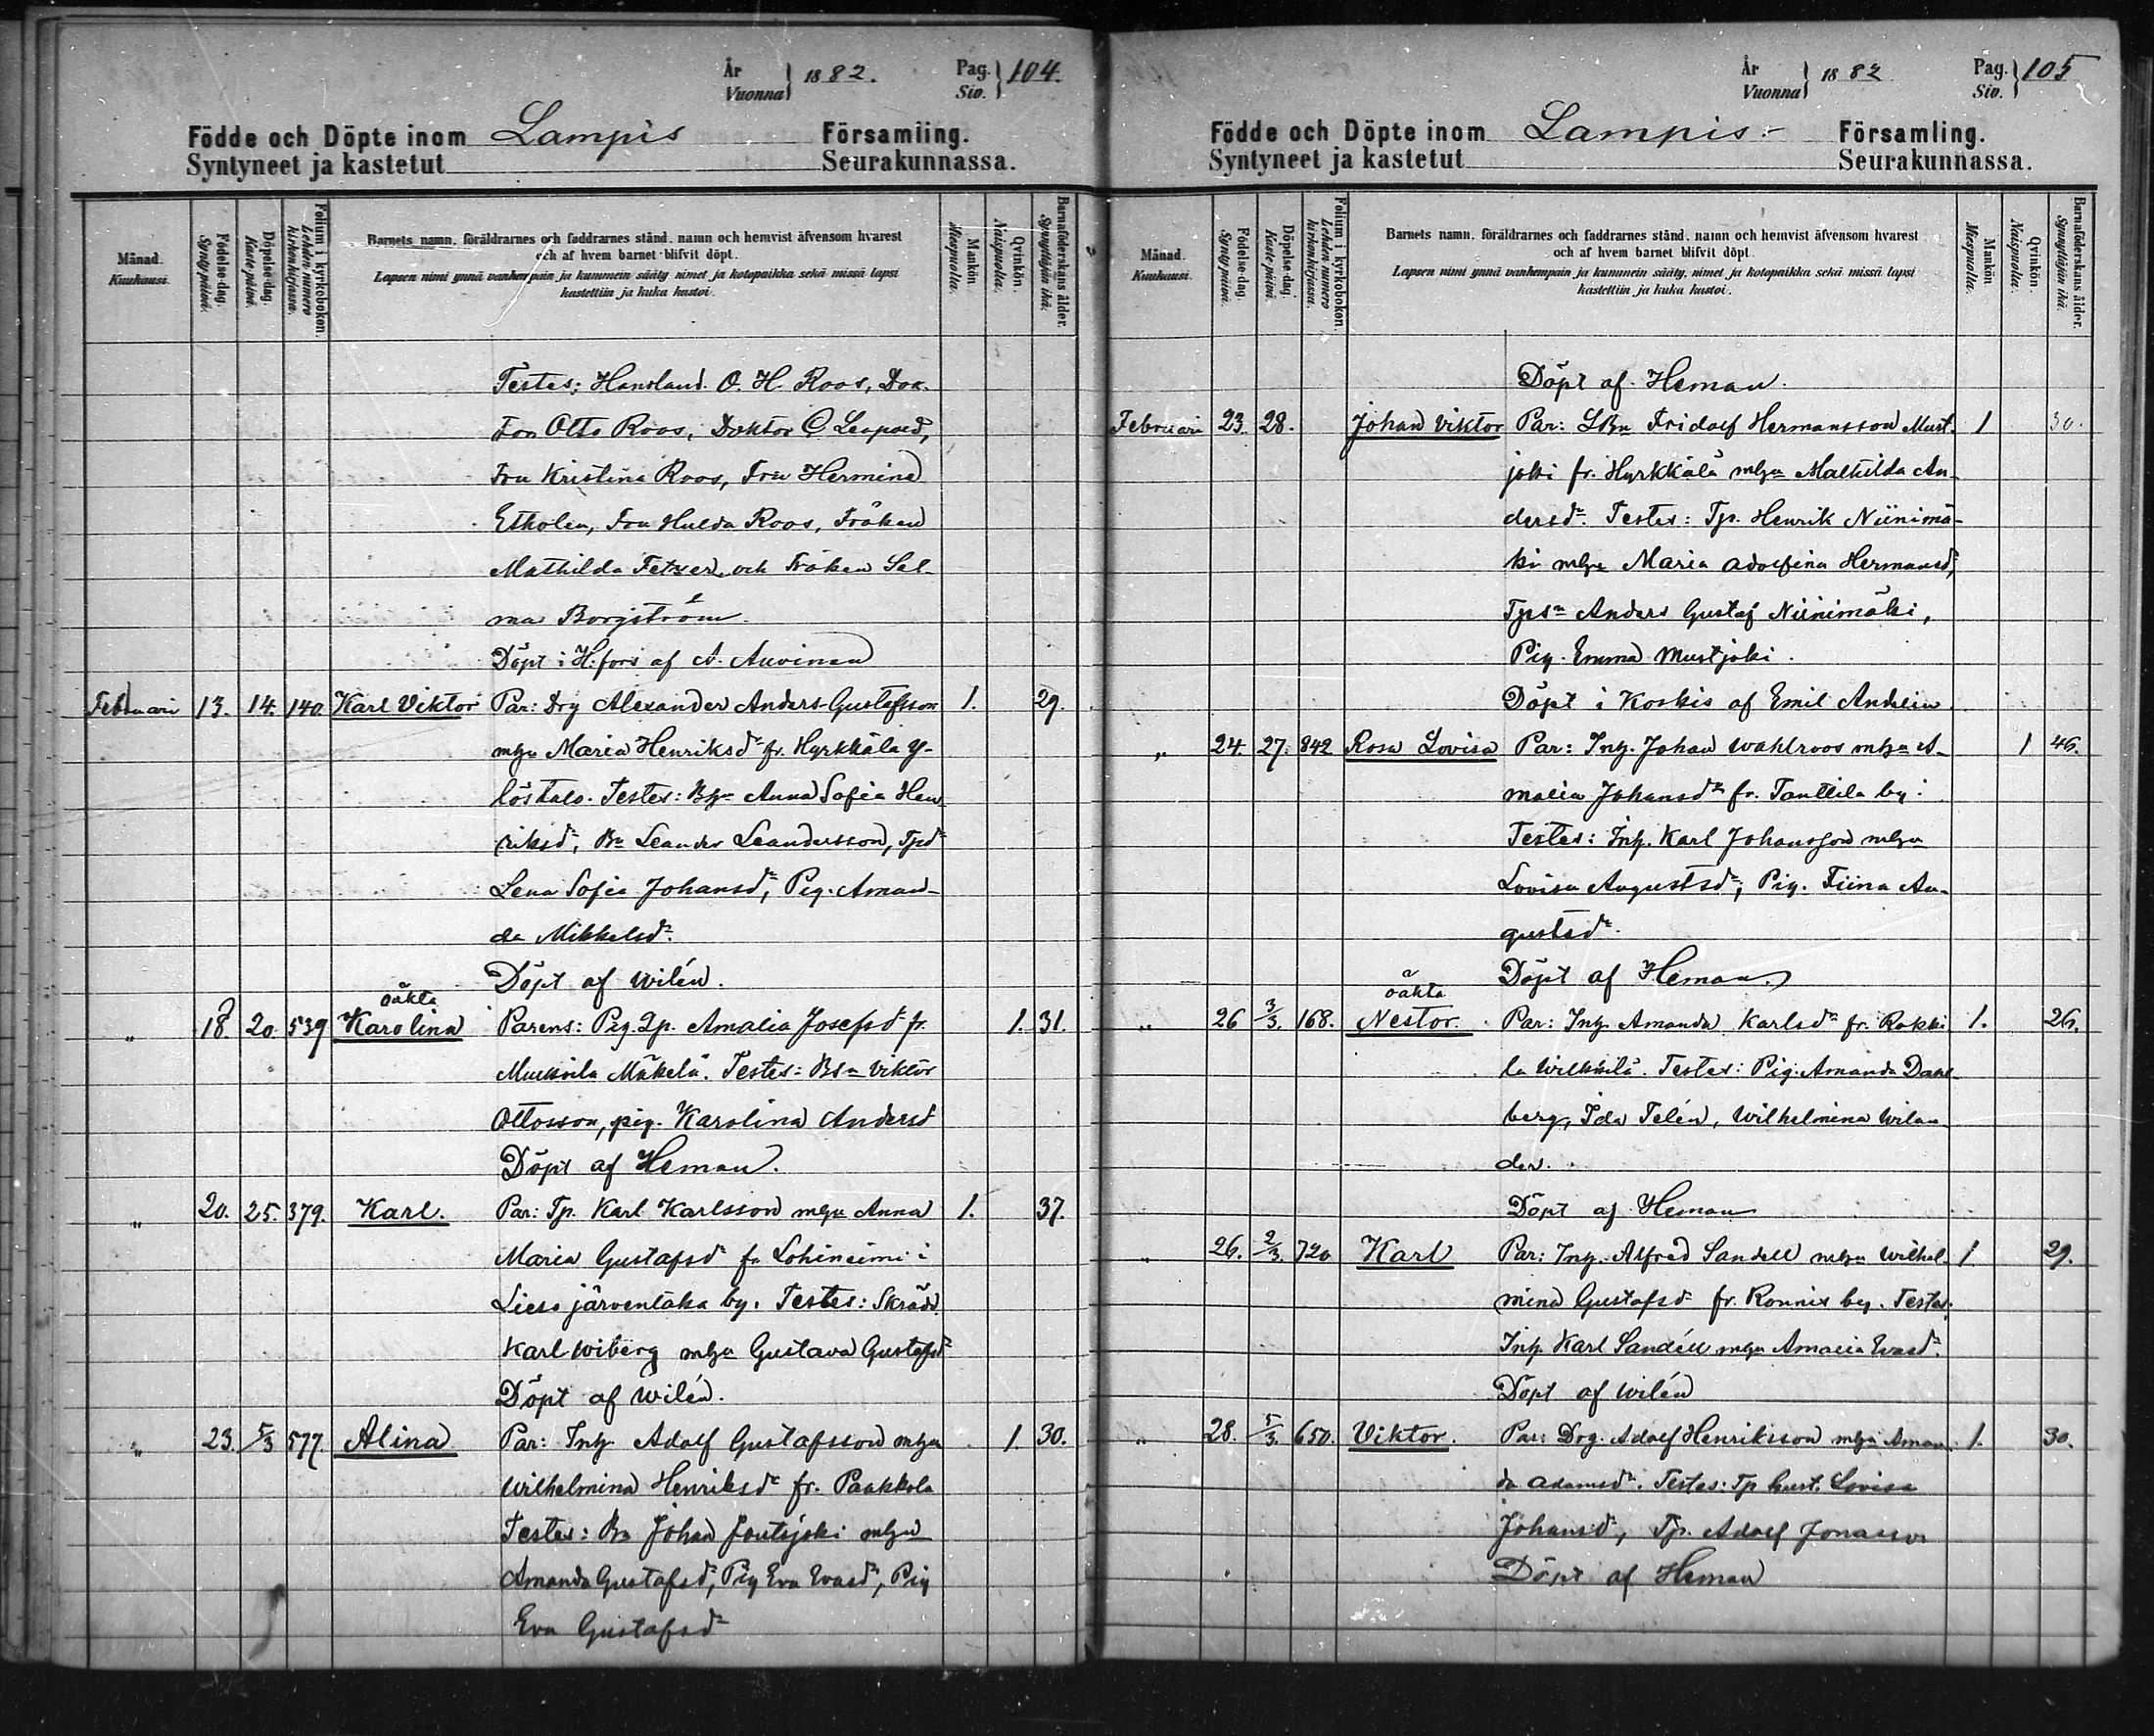 År
Vuonna } 1882.
Pag.
Siv. } 104.
Födde och Döpte inom Lampis Församling.
Syntyneet ja kastetut Seurakunnassa.
Månad.
Kuukausi.
Födelse-dag.
Synty-päivä.
Döpelse-dag.
Kaste-päivä.
Folium i kyrkobokon.
Lehden numero
kirkonkirjassa.
Barnets namn, föräldrarnes och faddrarnes stånd, namn och hemvist äfvensom hvarest
och af hvem barnet blifvit döpt.
Lapsen nimi ynnä vanhempain ja kummein sääty, nimet ja kotopaikka sekä missä lapsi
kastettiin ja kuka kastoi.
Mankön.
Miespuolia.
Qvinkön.
Naispuolia.
Barnaföderskans ålder.
Synnyttäjän ikä.
Testes: Handland. O. H. Roos, Dok.
Fru Otto Roos, Doktor C Leopold,
Fru Kristina Roos, Fru Hermina
Etholen, Fru Hulda Roos, Fröken
Mathilda Fetzer och Fröken Sel-
ma Borgström.
Döpt i H:fors af A. Auvinen
Februari 13. 14. 140 Karl Viktor Par: Drg Alexander Anders-Gustafsson 1. 29.
mhu Maria Henriksdr fr. Hyrkkälä Y-
löstalo. Testes: Anna Sofia Hen
riksdr, Bn Leander Leandersson, Tpdr
Lena Sofia Johansdr, Pig. Aman-
da Mikkelsdr.
Döpt af Wilén.
oäkta
" 18. 20. 539 Karolina Parens: Pig. Qp. Amalia Josefsdr fr. 1. 31.
Mäkelä. Testes: Viktor
Ottosson, pig. Karolina Andersd
Döpt af Heman.
" 20. 25. 379. Karl. Par: Tp. Karl Karlsson mhu Anna 1. 37.
Maria Gustafsdr fr Lohinimi i
Lieso järventaka by. Testes: Skrädd.
Karl Wiberg mhu Gustava Gustafsdr
Döpt af Wilén.
" 23. 5/3 577. Alina Par: Inh. Adolf Gustafsson mhu 1. 30.
Wilhelmina Henriksdr fr. Paakkola
Testes: Bn Johan Joutsjoki mhu
Amanda Gustafsdr, Pig Eva Evasdr, Pig
Eva Gustafsdr
År
Vuonna } 1882
Pag.
Siv. } 105
Födde och Döpte inom Lampis Församling.
Syntyneet ja kastetut Seurakunnassa.
Månad.
Kuukausi.
Födelse-dag.
Synty-päivä.
Döpelse-dag.
Kaste-päivä.
Folium i kyrkobokon.
Lehden numero
kirkonkirjassa.
Barnets namn, föräldrarnes och faddrarnes stånd, namn och hemvist äfvensom hvarest
och af hvem barnet blifvit döpt.
Lapsen nimi ynnä vanhempain ja kummein sääty, nimet ja kotopaikka sekä missä lapsi
kastettiin ja kuka kastoi.
Mankön
Miespuolia.
Qvinkön.
Naispuolia.
Barnaföderskans ålder.
Synnyttäjän ikä.
Döpt af Heman.
Februari 23. 28. Johan Viktor Par: LBn Fridolf Hermansson Must- 1 30.
joki fr. Hyrkkälä mhu Mathilda An-
dersdr. Testes: Tp. Henrik Niinimä-
ki mhu Maria Adolfina Hermansd,
Tpsn Anders Gustaf Niinimäki,
Pig. Emma Mustjoki.
Döpt i Koskis af Emil Andelin
" 24. 27. 842 Rosa Lovisa Par: Inh. Johan Wahlroos mhu A- 1 46.
malia Johansdr fr. Tanttila by.
Testes: Inh. Karl Johansson mhu
Lovisa Augustsdr, Pig. Fiina Au-
gustsdr.
Döpt af Heman.
oäkta
" 26 3/3. 168. Nestor. Par: Inh. Amanda Karlsdr fr. Rokki 1. 26.
la Wilkkilä. Testes: Pig. Amanda Dahl-
berg, Ida Telén, Wilhelmina Wilan-
der.
Döpt af Heman
" 26. 2/3. 720 Karl Par: Inh. Alfred Sandell mhu Wilhel- 1. 29.
mina Gustafsdr fr. Ronnis by. Testes:
Inh. Karl Sandéll mhu Amalia Evasdr.
Döpt af Wilén
" 28. 5/3. 650. Viktor. Par: Drg. Adolf Henriksson mhu Aman- 1. 30.
da Adamsdr. Testes: Tp hust. Lovisa
Johansdr, Tp. Adolf Jonasson
Döpt af Heman